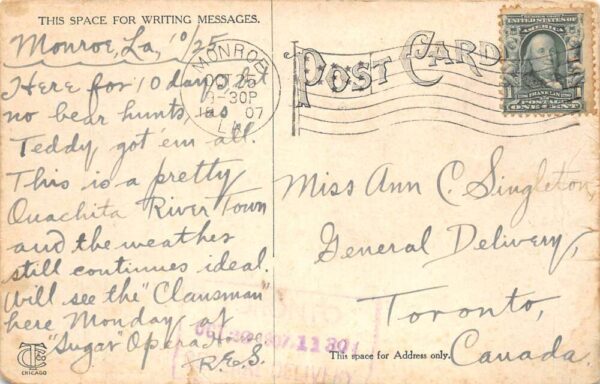 THIS SPACE FOR WRITING MESSAGES.
Monroe, La, 10/25
Here for 10 days but
no bear hunts,
Teddy got 'em all.
This is a pretty
Ouachita River Town
and the weather
still continues ideal.
Will see the "Clansman"
here Monday at
"Sugar" Opera House
R.E.S.
MONROE
OCT 25
9-30P
07
LA
POST CARD
UNITED STATES OF
AMERICA
FRANKLIN
POSTAGE
ONE CENT
Miss Ann C. Singleton,
General Delivery,
Toronto,
Canada.
This space for Address only.
11 30
DELIVERY
CHICAGO